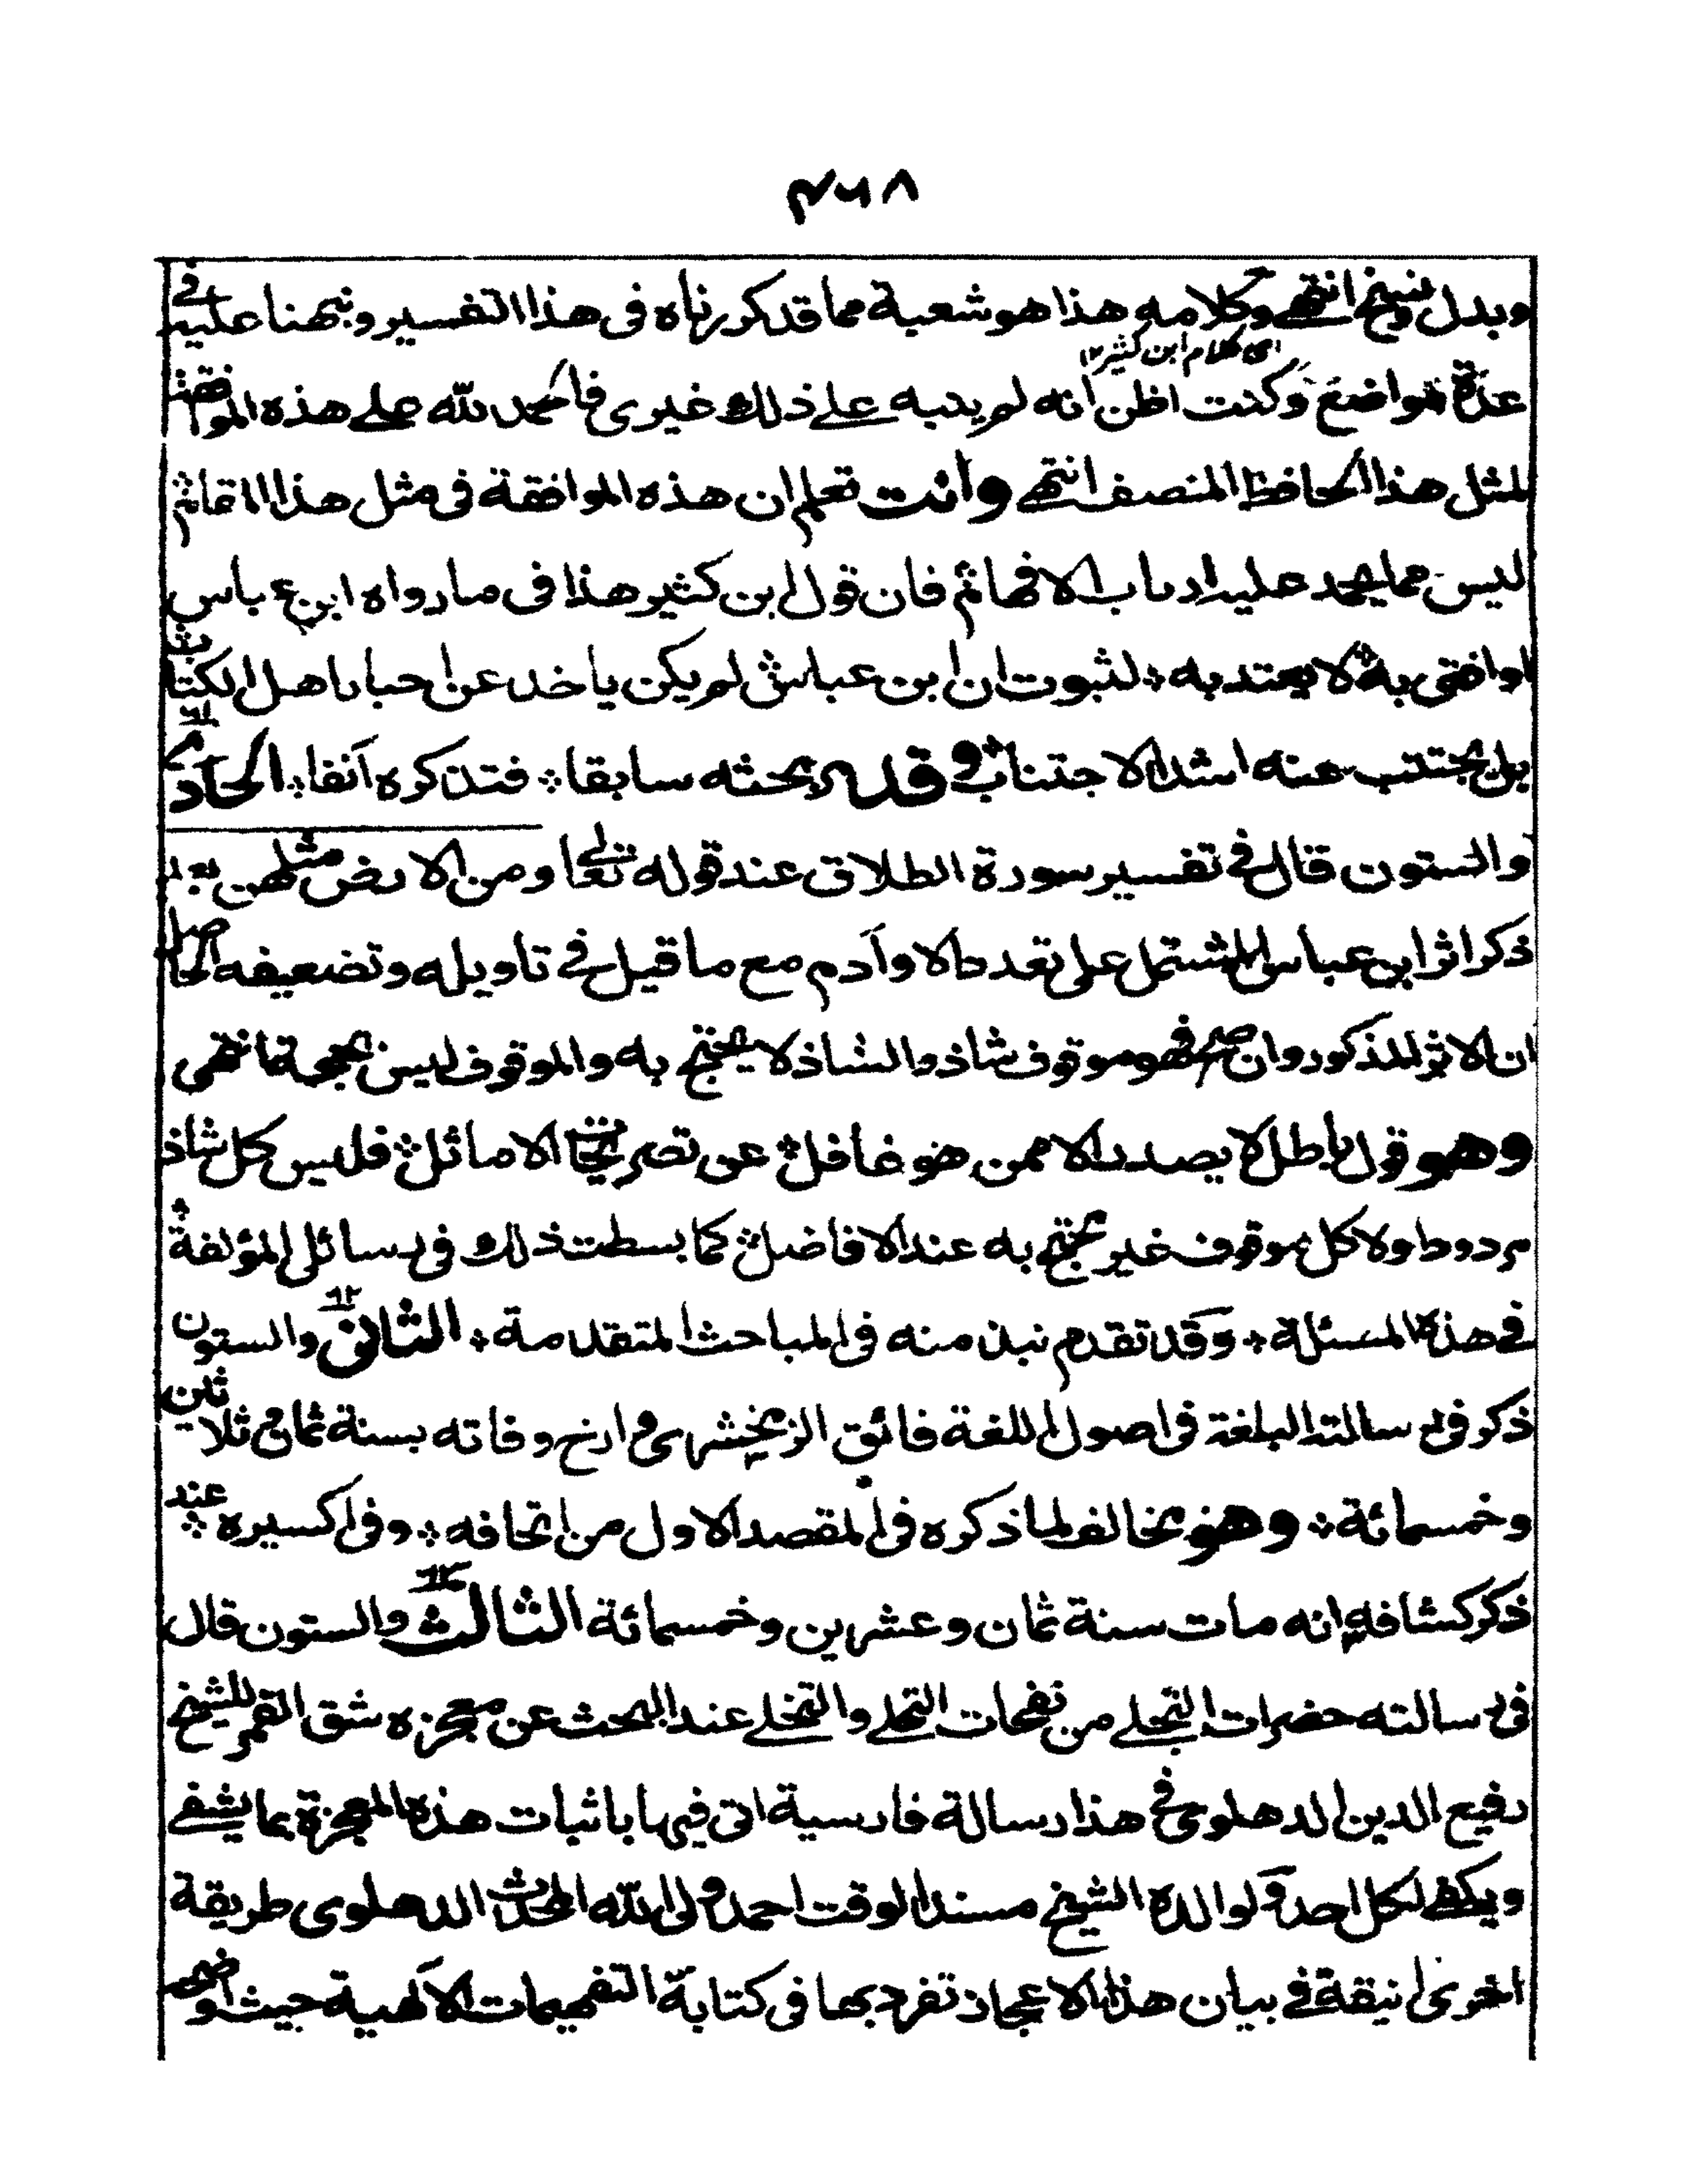 ٤٦٨
وبدل ونسخ انتهى وكلامه هذا هو شعبة مما قد كررناه فى هذا التفسير ونبهنا عليه فى
اى كلام ابن كثير ١٢
عدة مواضع وكنت اظن انه لم ينبه على ذلك غيرى فالحمد لله على هذه الموافقة
لمثل هذا الحافظ المنصف انتهى وانت تعلم ان هذه الموافقة فى مثل هذا المقام
ليس مما يحمد عليه ارباب الافهام فان قول ابن كثير هذا فى ما رواه ابن عباس
او افتى به لا يعتد به لثبوت ان ابن عباس لم يكن ياخذ عن احبار اهل الكتاب
بل يجتنب عنه اشد الاجتناب وقد مر بحثه سابقا فتذكره آنفا الحادى ٦١
والستون قال فى تفسير سورة الطلاق عند قوله تعالى ومن الارض مثلهن بعد
ذكر اثر ابن عباس المشتمل على تعدد الاوادم مع ما قيل فى تاويله وتضعيفه الحاصل
ان الاثر المذكور وان صح فهو موقوف شاذ والشاذ لا يحتج به والموقوف ليس بحجة انتهى
وهو قول باطل لا يصدر الا ممن هو غافل عن تصريحات الاماثل فليس كل شاذ
مردودا ولا كل موقوف غير محتج به عند الافاضل كما بسطت ذلك فى رسائلى المؤلفة
فى هذه المسئلة وقد تقدم نبذ منه فى المباحث المتقدمة الثانى ٦٢ والستون
ذكر فى رسالته البلغة فى اصول اللغة فائق الزمخشرى وارخ وفاته بسنة ثمان وثلاثين
وخمسمائة وهو مخالف لما ذكره فى المقصد الاول من اتحافه وفى اكسيره عند
ذكر كشافه انه مات سنة ثمان وعشرين وخمسمائة الثالث ٦٣ والستون قال
فى رسالته حضرات التجلى من نفحات التحلى والتخلى عند البحث عن معجزه شق القمر للشيخ
رفيع الدين الدهلوى فى هذا رسالة فارسية اتى فيها باثبات هذه المعجزة بما يشفى
ويكفى لكل احد ولوالده الشيخ مسند الوقت احمد ولى الله المحدث الدهلوى طريقة
اخرى انيقة فى بيان هذا الاعجاز تفرد بها فى كتابه التفهيمات الالهية حيث اوضح